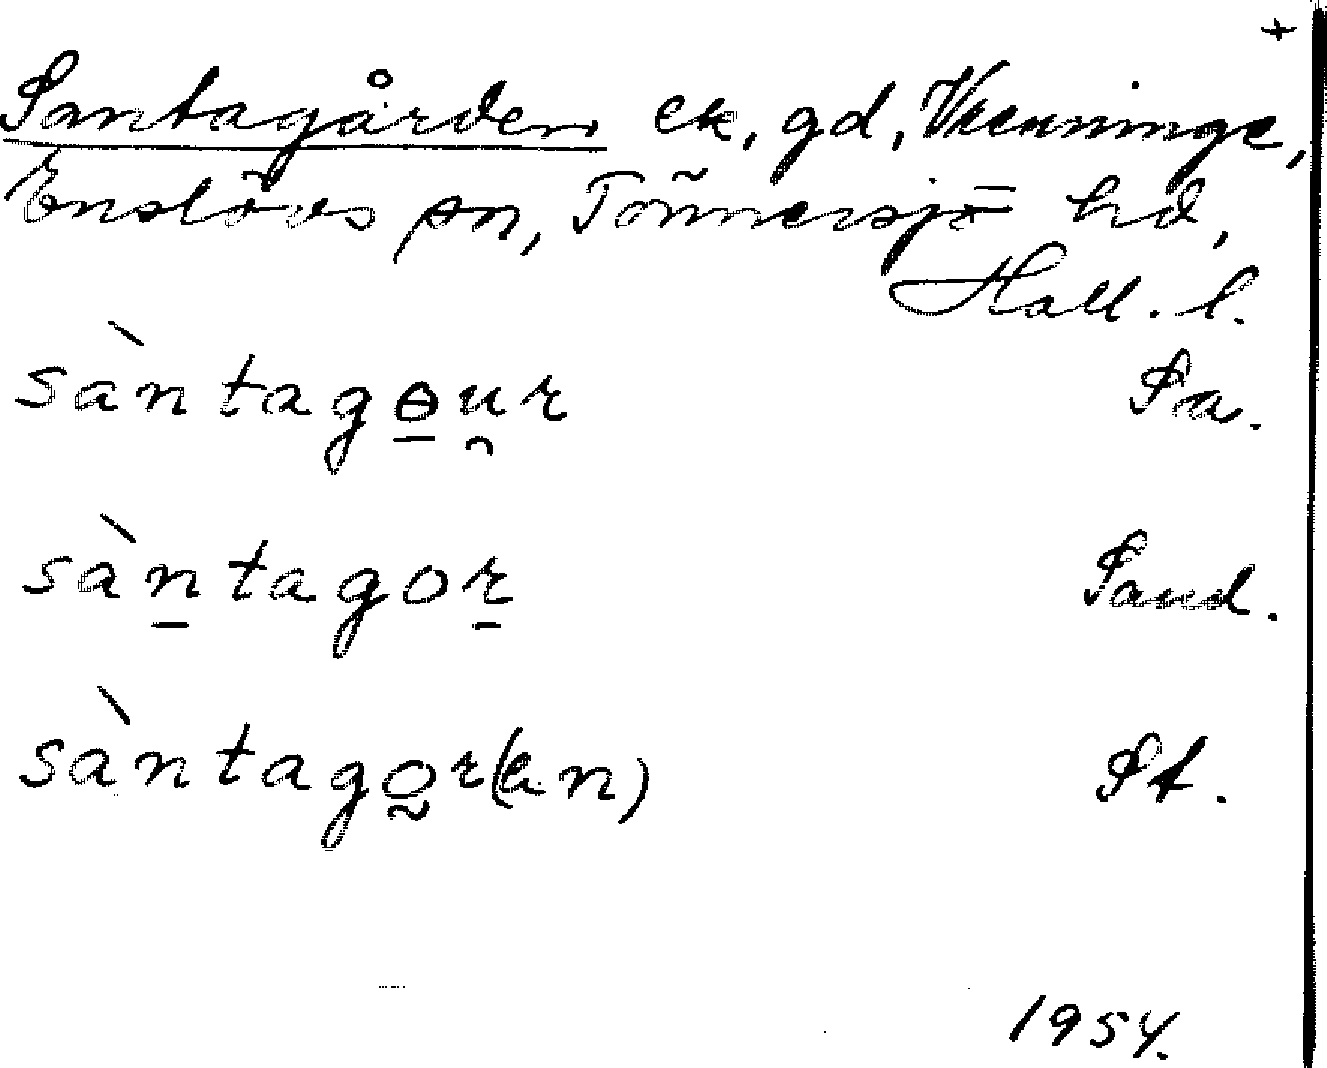 +
Santagården ek. gd, Vrenninge,
Enslövs sn, Tönnersjö hd,
Hall. l.
sàntagɵu̯r Sa.
sàntagor Sand.
sàntagor(en) St.
1954.